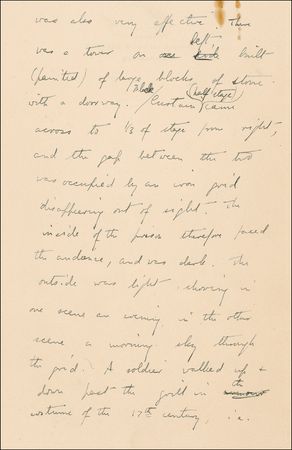 was also very effective. There
left
was a tower on one side built
(painted) of large blocks of stone
with a doorway. / Black Curtain (half stage) came
across to 1/3 of stage from right,
and the gap between the two
was occupied by an iron grid
disappearing out of sight. The
inside of the prison therefore faced
the audience, and was dark. The
outside was light showing in
one scene an evening, in the other
scene a morning sky through
the grid. A soldier walked up +
down past the grill in the
costume of the 17th century, i.e.